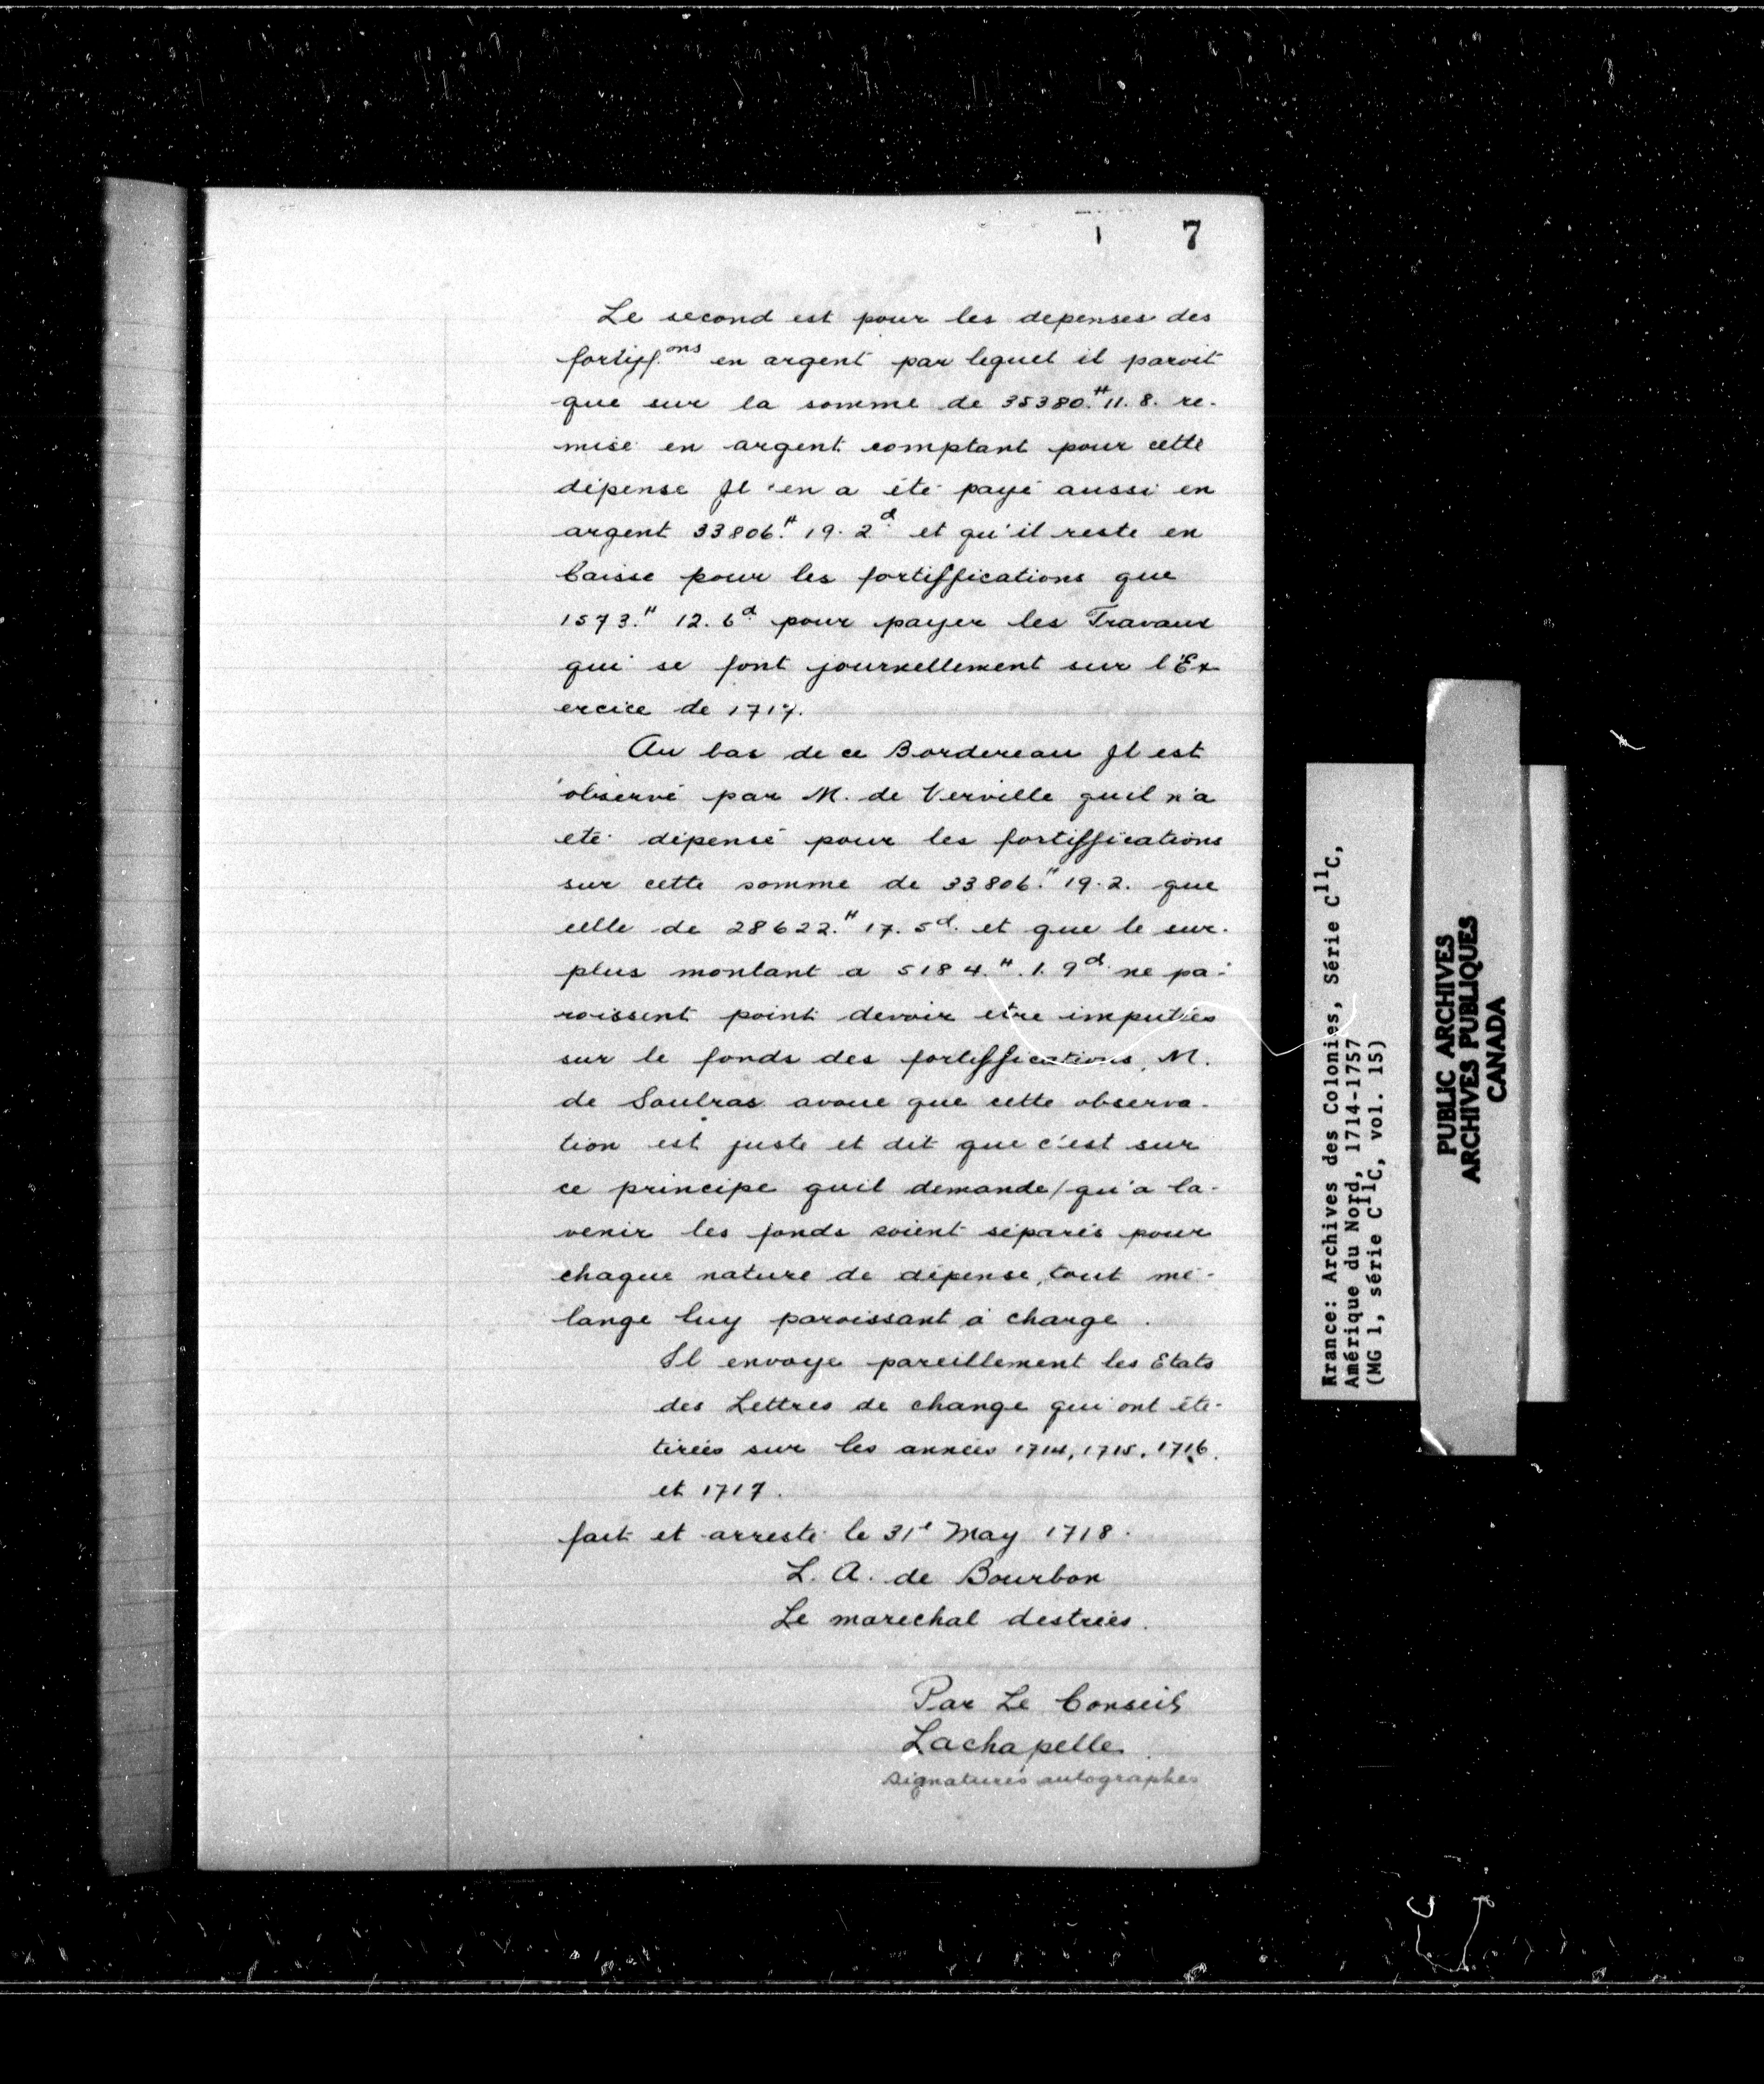 7
Le second est pour les depenses des
fortiff.ons en argent par lequel il paroit
que sur la somme de 35380.# 11. 8. re-
mise en argent comptant pour cette
dépense Il en a été payé aussi en
argent 33806.# 19. 2d. et qu'il reste en
Caisse pour les fortiffications que
1573.# 12. 6d. pour payer les Travaux
qui se font journellement sur l'Ex
ercice de 1717.
Au bas de ce Bordereau Il est
observé par M. de Verville quil n'a
eté dépensé pour les fortiffications
sur cette somme de 33806.# 19. 2. que
celle de 28622.# 17. 5d. et que le sur-
plus montant a 5184.# 1. 9d. ne pa-
roissent point devoir etre imputées
sur le fonds des fortiffications, M.
de Soubras avoue que cette observa-
tion est juste et dit que c'est sur
ce principe quil demande/qu'a la-
venir les fonds soient séparés pour
chaque nature de dépense, tout mé-
lange luy paroissant à charge.
Il envoye pareillement les Etats
des Lettres de change qui ont été
tirées sur les années 1714, 1715, 1716.
et 1717.
fait et arresté le 31e May 1718.
L. A. de Bourbon
Le marechal destrées.
Par Le Conseil
Lachapelle.
signatures autographes
France: Archives des Colonies, Série C11C,
Amérique du Nord, 1714-1757
(MG 1, série C11C, vol. 15)
PUBLIC ARCHIVES
ARCHIVES PUBLIQUES
CANADA